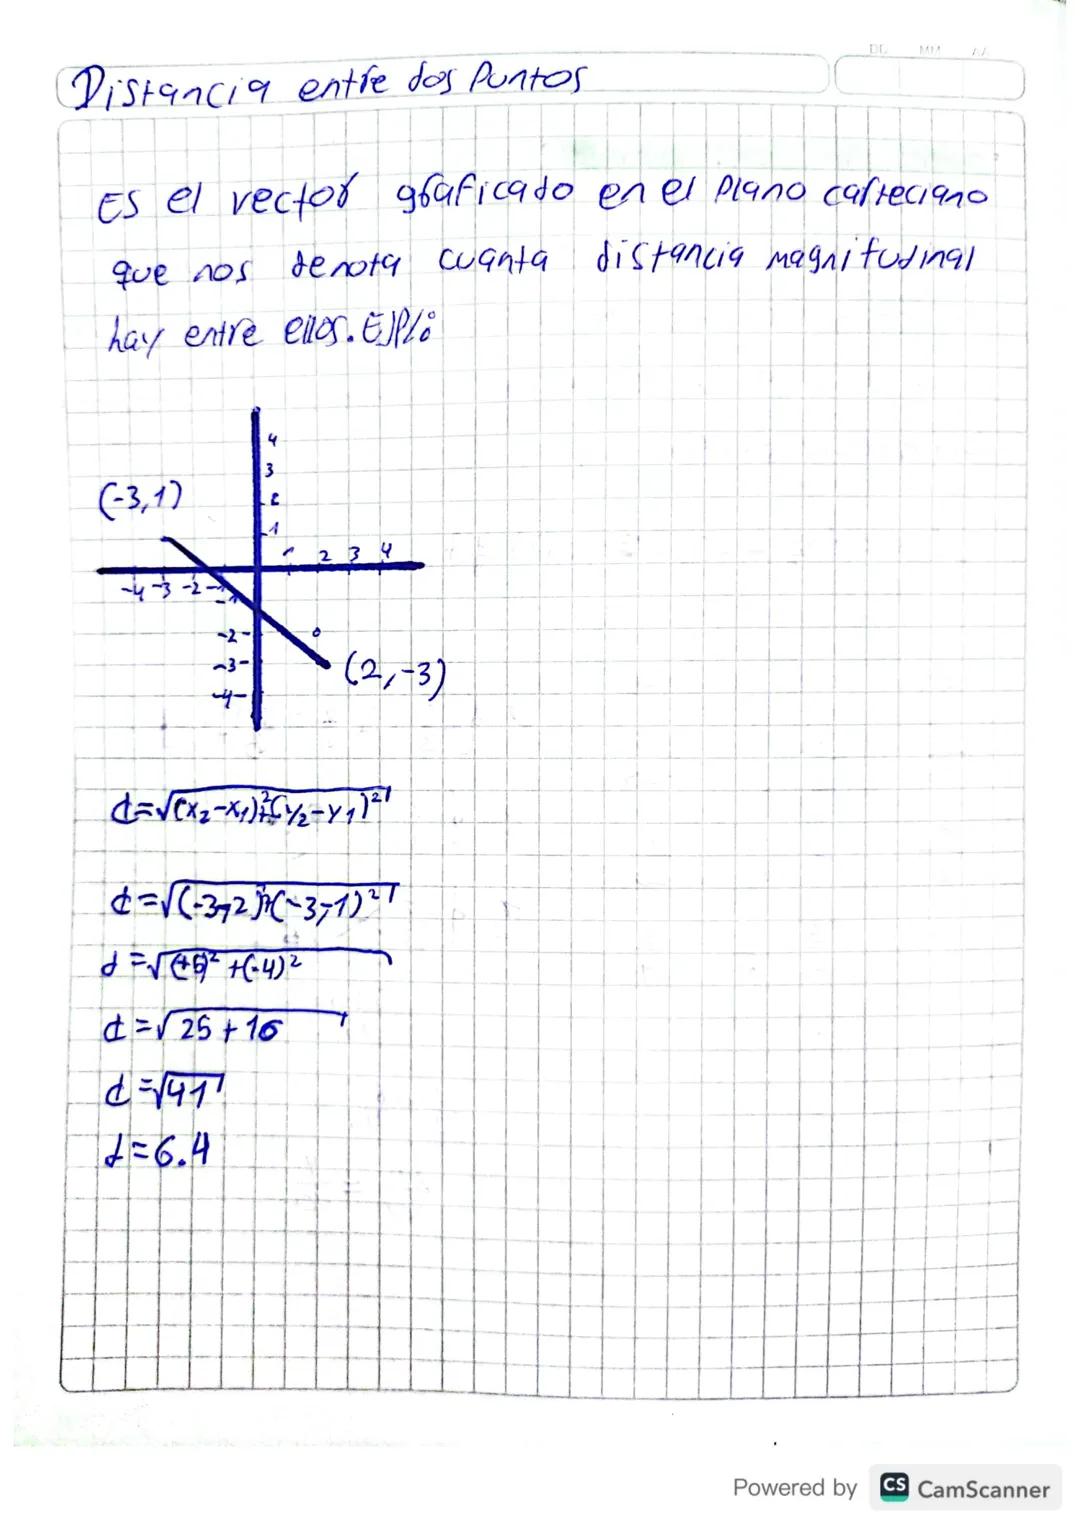 DD MM AA
Distancia entre dos Puntos
Es el vector graficado en el Plano carteciano
que nos denota cuanta distancia magnitudinal
hay entre ellos. EJPlo
4
3
2
1
(-3,1)
1 2 3 4
-4 -3 -2 -1
-1
-2
-3
-4
(2,-3)
d=√(x₂-x₁)²+(y₂-y₁)²
d=√(-3-2)²+(-3-1)²
d=√(+5)²+(-4)²
d=√25+16
d=√41
d=6.4
Powered by CS CamScanner